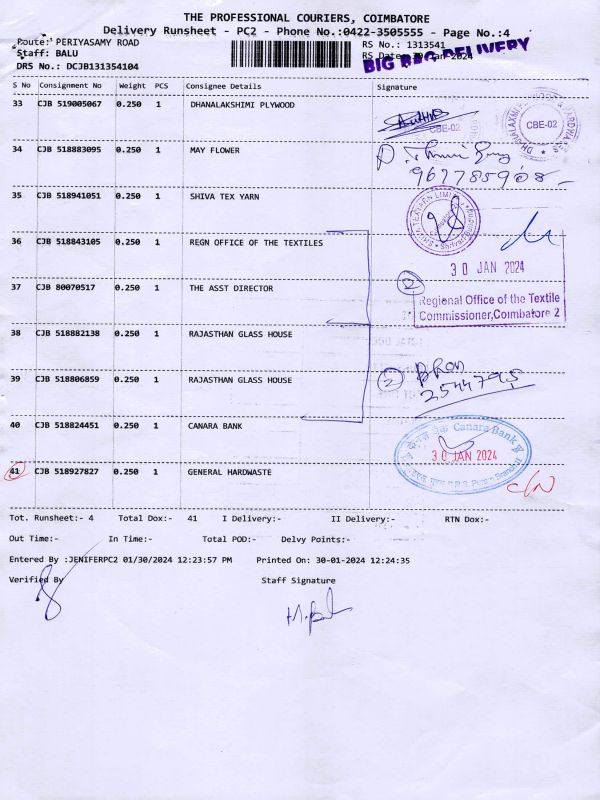 THE PROFESSIONAL COURIERS, COIMBATORE
Delivery Runsheet - PC2 - Phone No.:0422-3505555 - Page No.:4
Route: PERIYASAMY ROAD
RS No.: 1313541
Staff: BALU
RS Date: 30 Jan-2024
BIG BAG DELIVERY
DRS No.: DCJB131354104
S No Consignment No Weight PCS Consignee Details Signature
33 CJB 519005067 0.250 1 DHANALAKSHIMI PLYWOOD
CBE-02
CBE-02
34 CJB 518883095 0.250 1 MAY FLOWER
967785908
35 CJB 518941051 0.250 1 SHIVA TEX YARN
36 CJB 518843105 0.250 1 REGN OFFICE OF THE TEXTILES
30 JAN 2024
37 CJB 80070517 0.250 1 THE ASST DIRECTOR
2
Regional Office of the Textile
Commissioner,Coimbatore 2
38 CJB 518882138 0.250 1 RAJASTHAN GLASS HOUSE
39 CJB 518806859 0.250 1 RAJASTHAN GLASS HOUSE
2
2544795
40 CJB 518824451 0.250 1 CANARA BANK
Canara Bank
30 JAN 2024
41 CJB 518927827 0.250 1 GENERAL HARDWASTE
C/N
Tot. Runsheet:- 4 Total Dox:- 41 I Delivery:- II Delivery:- RTN Dox:-
Out Time:- In Time:- Total POD:- Delvy Points:-
Entered By :JENIFERPC2 01/30/2024 12:23:57 PM Printed On: 30-01-2024 12:24:35
Verified By Staff Signature